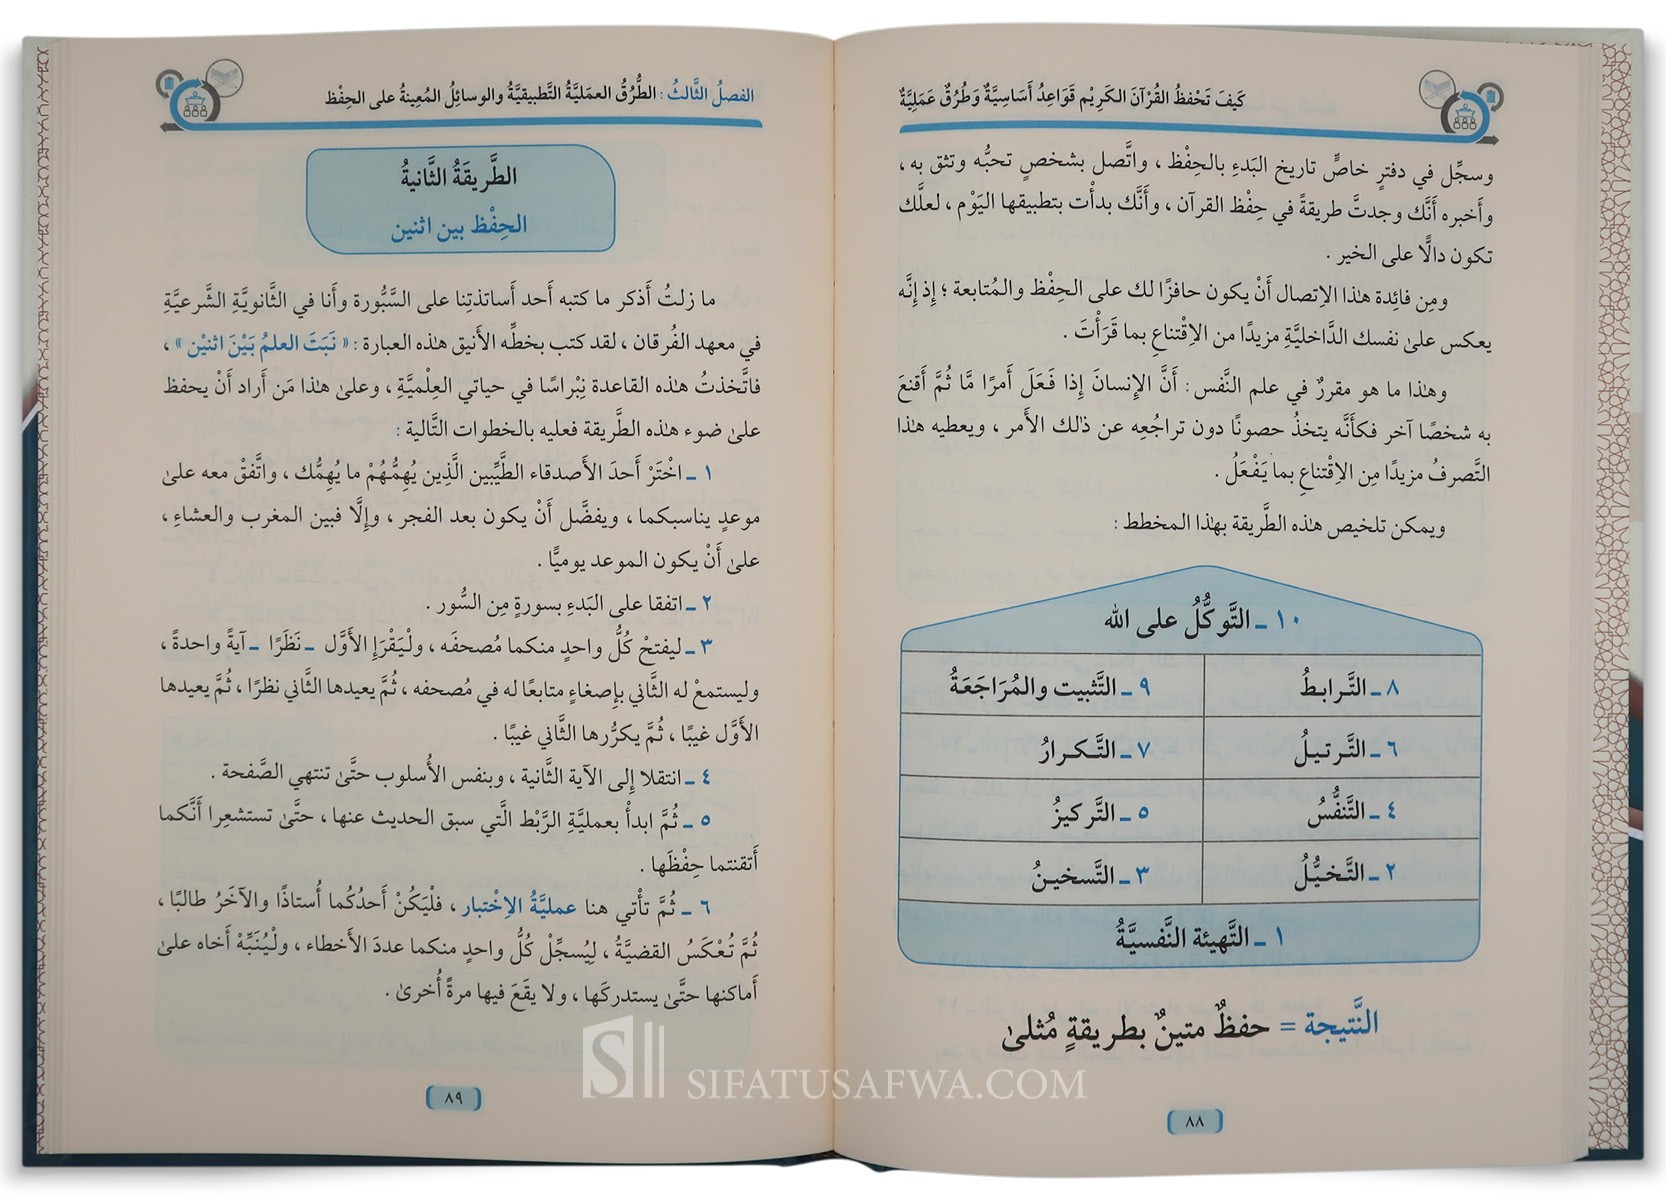 كَيفَ تَحْفظُ القُرْآنَ الكَرِيْم قَوَاعِدُ أَسَاسِيَّةٌ وَطُرُقٌ عَمَلِيَّةٌ
وسجِّل في دفترٍ خاصٍّ تاريخ البَدءِ بالحِفْظ ، واتَّصل بشخصٍ تحبُّه وتثق به ،
وأخبره أنَّك وجدتَّ طريقةً في حِفْظ القرآن ، وأنَّك بدأْت بتطبيقها اليَوْم ، لعلَّك
تكون دالًّا على الخير .
ومِن فائِدة هٰذا الاِتصال أَنْ يكون حافزًا لك على الحِفْظ والمُتابعة ؛ إِذ إِنَّه
يعكس علىٰ نفسك الدَّاخليَّةِ مزيدًا من الاِقْتناعِ بما قَرَأْتَ .
وهٰذا ما هو مقررٌ في علم النَّفس : أَنَّ الإِنسانَ إِذا فَعَلَ أَمرًا مَّا ثُمَّ أَقنعَ
به شخصًا آخر فكأَنَّه يتخذُ حصونًا دون تراجُعِه عن ذٰلك الأَمر ، ويعطيه هٰذا
التَّصرفُ مزيدًا مِن الاِقْتناعِ بما يَفْعَلُ .
ويمكن تلخيص هٰذه الطَّريقة بهٰذا المخطط :
١٠ ـ التَّوكُّلُ على الله
٨ ـ التَّرابطُ
٩ ـ التَّثبيت والمُرَاجَعَةُ
٦ ـ التَّرتيلُ
٧ ـ التَّكرارُ
٤ ـ التَّنفُّسُ
٥ ـ التَّركيزُ
٢ ـ التَّخيُّلُ
٣ ـ التَّسخينُ
١ ـ التَّهيئة النَّفسيَّةُ
النَّتيجة = حفظٌ متينٌ بطريقةٍ مُثلىٰ
٨٨
الفصلُ الثَّالثُ : الطُّرُقُ العمَليَّةُ التَّطبيقيَّةُ والوسائِلُ المُعِينةُ على الحِفْظ
الطَّريقَةُ الثَّانيةُ
الحِفْظ بين اثنين
ما زلتُ أَذكر ما كتبه أَحد أَساتذتِنا على السَّبُّورة وأَنا في الثَّانويَّةِ الشَّرعيَّةِ
في معهد الفُرقان ، لقد كتب بخطِّه الأَنيق هٰذه العبارة : « نَبَتَ العلمُ بَيْنَ اثنَيْن » ،
فاتَّخذتُ هٰذه القاعدة نِبْراسًا في حياتي العِلْميَّةِ ، وعلىٰ هٰذا مَن أَراد أَنْ يحفظ
علىٰ ضوء هٰذه الطَّريقة فعليه بالخطوات التَّالية :
١ ـ اخْتَرْ أَحدَ الأَصدقاء الطَّيِّبين الَّذِين يُهِمُّهُمْ ما يُهِمُّك ، واتَّفقْ معه علىٰ
موعدٍ يناسبكما ، ويفضَّل أَنْ يكون بعد الفجر ، وإِلَّا فبين المغرب والعشاءِ ،
علىٰ أَنْ يكون الموعد يوميًّا .
٢ ـ اتفقا على البَدءِ بسورةٍ مِن السُّور .
٣ ـ ليفتحْ كُلُّ واحدٍ منكما مُصحفَه ، ولْيَقْرَإِ الأَوَّل ـ نَظَرًا ـ آيةً واحدةً ،
وليستمعْ له الثَّاني بإِصغاءٍ متابعًا له في مُصحفه ، ثُمَّ يعيدها الثَّاني نظرًا ، ثُمَّ يعيدها
الأَوَّل غيبًا ، ثُمَّ يكرُّرها الثَّاني غيبًا .
٤ ـ انتقلا إِلى الآية الثَّانية ، وبنفس الأُسلوب حتَّىٰ تنتهي الصَّفحة .
٥ ـ ثُمَّ ابدأْ بعمليَّةِ الرَّبْط الَّتي سبق الحديث عنها ، حتَّىٰ تستشعِرا أَنَّكما
أَتقنتما حِفْظَها .
٦ ـ ثُمَّ تأْتي هنا عمليَّةُ الاِخْتبار ، فلْيَكُنْ أَحدُكُما أُستاذًا والآخَرُ طالبًا ،
ثُمَّ تُعْكَسُ القضيَّةُ ، لِيُسجِّلْ كُلُّ واحدٍ منكما عددَ الأَخطاء ، ولْيُنَبِّهْ أَخاه علىٰ
أَماكنها حتَّىٰ يستدركَها ، ولا يقَعَ فيها مرةً أُخرىٰ .
٨٩
SIFATUSAFWA.COM